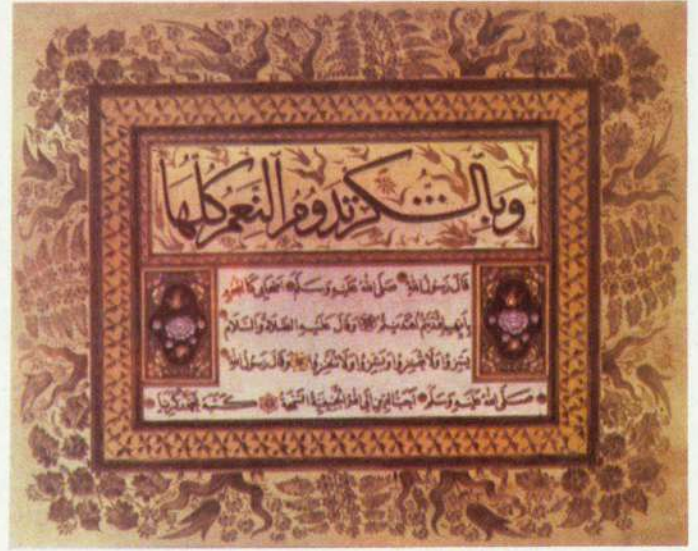 وبالشكر تدوم النعم كلها
قال رسول الله صلى الله عليه وسلم اصحابي كالنجوم
بأيهم اقتديتم اهتديتم وقال عليه الصلاة والسلام
يسروا ولا تعسروا وبشروا ولا تنفروا وقال رسول الله
صلى الله عليه وسلم احب الدين الى الله الحنيفية السمحة كتبه محمد